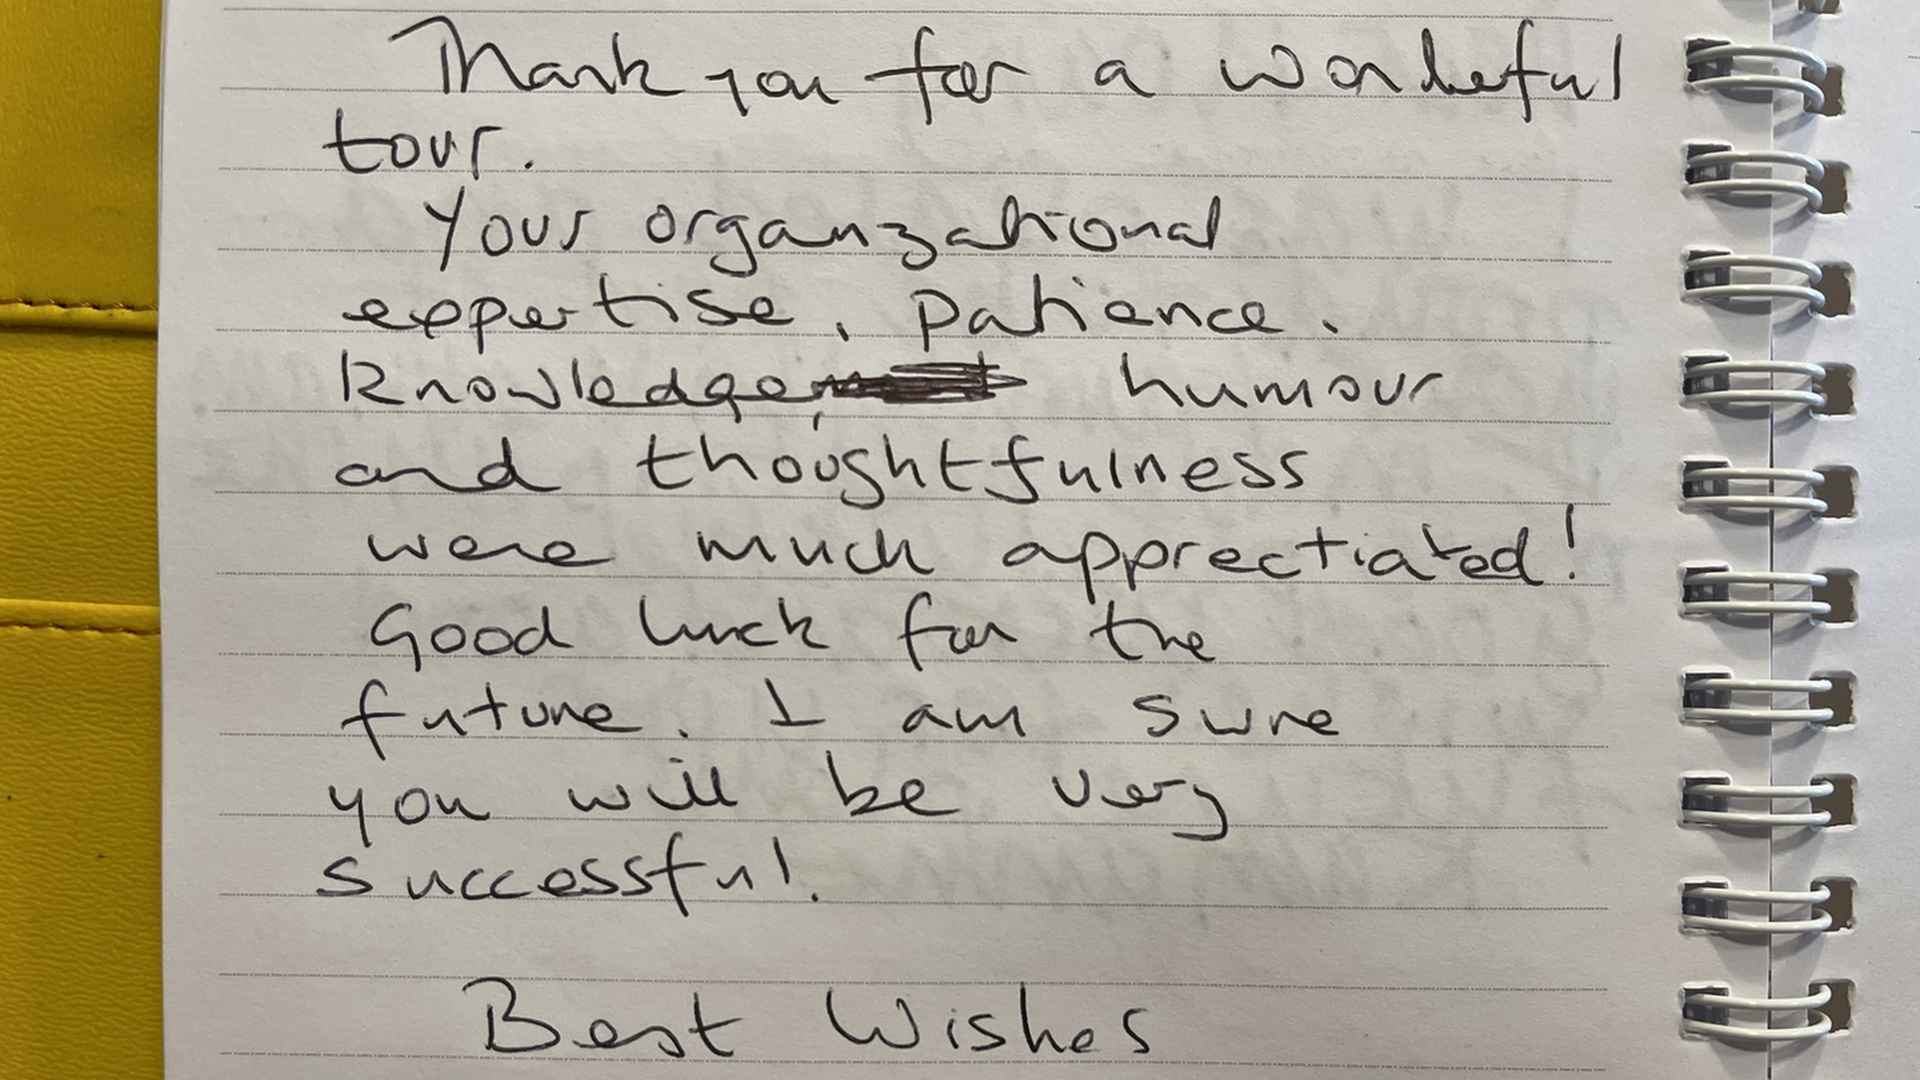 Thank you for a wonderful
tour.
Your organzational
expertise, patience.
knowledge, humour
and thoughtfulness
were much apprectiated!
Good luck for the
future. I am sure
you will be very
successful.
Best Wishes